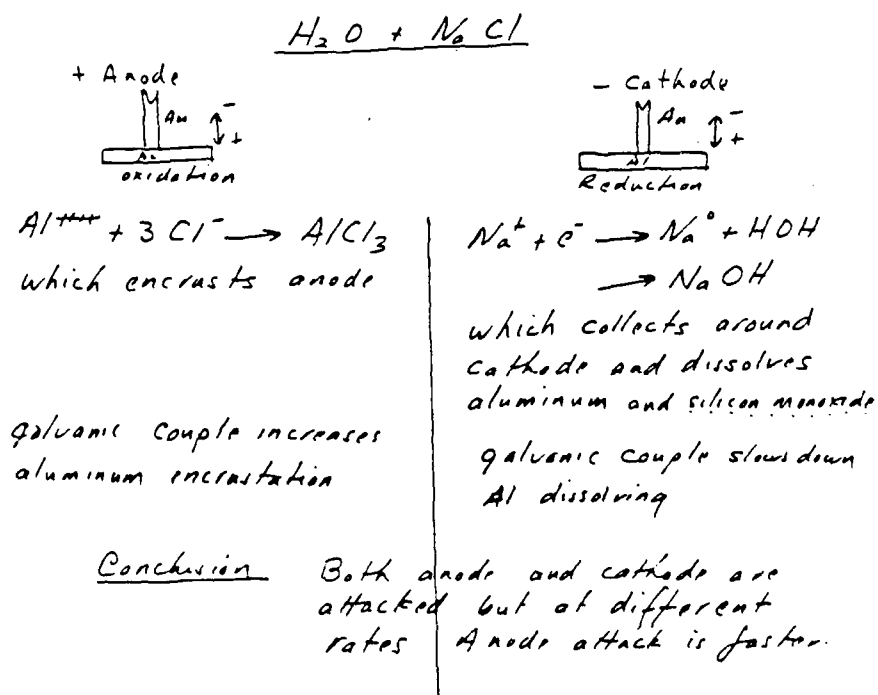 H₂O + NaCl
+ Anode
Au
-
+
Al
oxidation
Al⁺⁺⁺ + 3 Cl⁻ → AlCl₃
which encrusts anode
galvanic couple increases
aluminum encrustation
- Cathode
Au
-
+
Al
Reduction
Na⁺ + e⁻ → Na° + HOH
→ NaOH
which collects around
cathode and dissolves
aluminum and silicon monoxide
galvanic couple slows down
Al dissolving
Conclusion Both anode and cathode are
attacked but at different
rates Anode attack is faster.